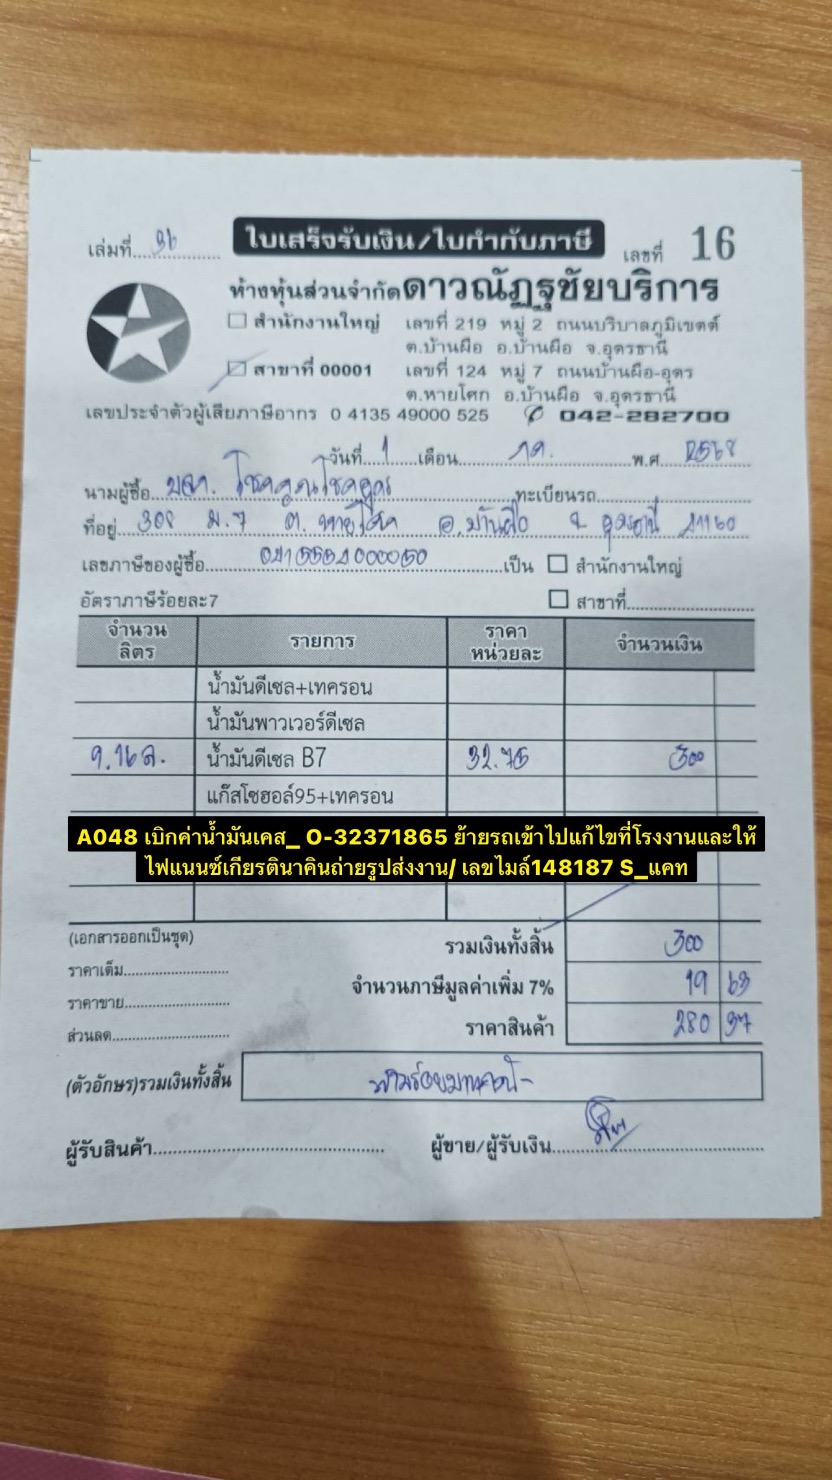 ใบเสร็จรับเงิน/ใบกำกับภาษี
เล่มที่ 36 เลขที่ 16
ห้างหุ้นส่วนจำกัดดาวณัฏฐชัยบริการ
สำนักงานใหญ่ เลขที่ 219 หมู่ 2 ถนนบริบาลภูมิเขตต์
ต.บ้านผือ อ.บ้านผือ จ.อุดรธานี
สาขาที่ 00001 เลขที่ 124 หมู่ 7 ถนนบ้านผือ-อุดร
ต.หายโศก อ.บ้านผือ จ.อุดรธานี
เลขประจำตัวผู้เสียภาษีอากร 0 4135 49000 525 042-282700
วันที่ 1 เดือน กค. พ.ศ 2568
นามผู้ซื้อ บจก. ทะเบียนรถ
ที่อยู่ 308 ม.7 ต. หายโศก อ.บ้านผือ จ อุดรธานี 41160
เลขภาษีของผู้ซื้อ เป็น สำนักงานใหญ่
อัตราภาษีร้อยละ7 สาขาที่
จำนวนลิตร รายการ ราคาหน่วยละ จำนวนเงิน
น้ำมันดีเซล+เทครอน
น้ำมันพาวเวอร์ดีเซล
9.16ล. น้ำมันดีเซล B7 32.75 300
แก๊สโซฮอล์95+เทครอน
A048 เบิกค่าน้ำมันเคส_ O-32371865 ย้ายรถเข้าไปแก้ไขที่โรงงานและให้
ไฟแนนซ์เกียรตินาคินถ่ายรูปส่งงาน/ เลขไมล์148187 S_แคท
(เอกสารออกเป็นชุด) รวมเงินทั้งสิ้น 300
ราคาเต็ม จำนวนภาษีมูลค่าเพิ่ม 7% 19 63
ราคาขาย
ส่วนลด ราคาสินค้า 280 37
(ตัวอักษร)รวมเงินทั้งสิ้น สามร้อยบาทถ้วน-
ผู้รับสินค้า ผู้ขาย/ผู้รับเงิน